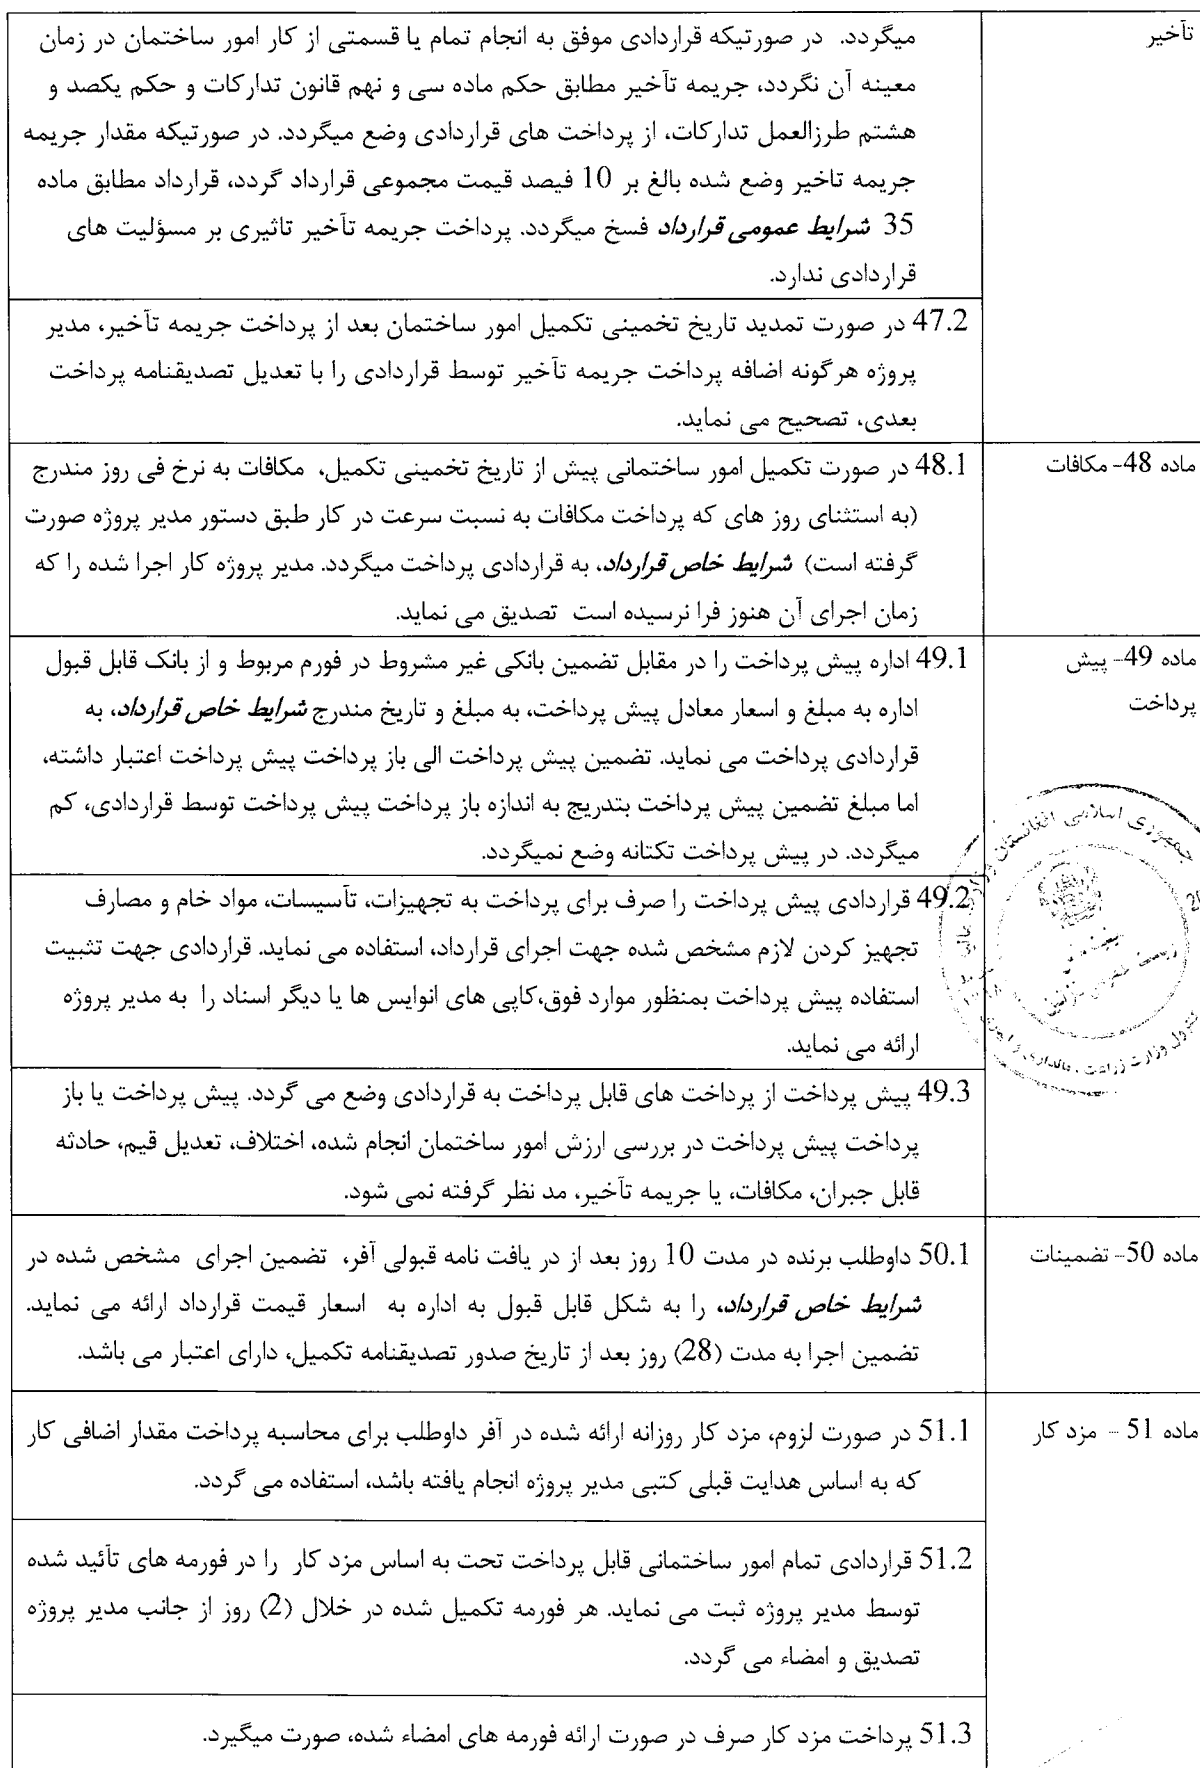 تأخیر
میگردد. در صورتیکه قراردادی موفق به انجام تمام یا قسمتی از کار امور ساختمان در زمان
معینه آن نگردد، جریمه تأخیر مطابق حکم ماده سی و نهم قانون تدارکات و حکم یکصد و
هشتم طرزالعمل تدارکات، از پرداخت های قراردادی وضع میگردد. در صورتیکه مقدار جریمه
جریمه تاخیر وضع شده بالغ بر 10 فیصد قیمت مجموعی قرارداد گردد، قرارداد مطابق ماده
35 شرایط عمومی قرارداد فسخ میگردد. پرداخت جریمه تأخیر تاثیری بر مسؤلیت های
قراردادی ندارد.
47.2 در صورت تمدید تاریخ تخمینی تکمیل امور ساختمان بعد از پرداخت جریمه تأخیر، مدیر
پروژه هرگونه اضافه پرداخت جریمه تأخیر توسط قراردادی را با تعدیل تصدیقنامه پرداخت
بعدی، تصحیح می نماید.
ماده 48- مکافات
48.1 در صورت تکمیل امور ساختمانی پیش از تاریخ تخمینی تکمیل، مکافات به نرخ فی روز مندرج
(به استثنای روز های که پرداخت مکافات به نسبت سرعت در کار طبق دستور مدیر پروژه صورت
گرفته است) شرایط خاص قرارداد، به قراردادی پرداخت میگردد. مدیر پروژه کار اجرا شده را که
زمان اجرای آن هنوز فرا نرسیده است تصدیق می نماید.
ماده 49- پیش
پرداخت
49.1 اداره پیش پرداخت را در مقابل تضمین بانکی غیر مشروط در فورم مربوط و از بانک قابل قبول
اداره به مبلغ و اسعار معادل پیش پرداخت، به مبلغ و تاریخ مندرج شرایط خاص قرارداد، به
قراردادی پرداخت می نماید. تضمین پیش پرداخت الی باز پرداخت پیش پرداخت اعتبار داشته،
اما مبلغ تضمین پیش پرداخت بتدریج به اندازه باز پرداخت پیش پرداخت توسط قراردادی، کم
میگردد. در پیش پرداخت تکتانه وضع نمیگردد.
49.2 قراردادی پیش پرداخت را صرف برای پرداخت به تجهیزات، تأسیسات، مواد خام و مصارف
تجهیز کردن لازم مشخص شده جهت اجرای قرارداد، استفاده می نماید. قراردادی جهت تثبیت
استفاده پیش پرداخت بمنظور موارد فوق،کاپی های انوایس ها یا دیگر اسناد را به مدیر پروژه
ارائه می نماید.
49.3 پیش پرداخت از پرداخت های قابل پرداخت به قراردادی وضع می گردد. پیش پرداخت یا باز
پرداخت پیش پرداخت در بررسی ارزش امور ساختمان انجام شده، اختلاف، تعدیل قیم، حادثه
قابل جبران، مکافات، یا جریمه تأخیر، مد نظر گرفته نمی شود.
جمهوری اسلامی افغانستان
وزارت زراعت ، مالداری
ماده 50- تضمینات
50.1 داوطلب برنده در مدت 10 روز بعد از در یافت نامه قبولی آفر، تضمین اجرای مشخص شده در
شرایط خاص قرارداد، را به شکل قابل قبول به اداره به اسعار قیمت قرارداد ارائه می نماید.
تضمین اجرا به مدت (28) روز بعد از تاریخ صدور تصدیقنامه تکمیل، دارای اعتبار می باشد.
ماده 51 - مزد کار
51.1 در صورت لزوم، مزد کار روزانه ارائه شده در آفر داوطلب برای محاسبه پرداخت مقدار اضافی کار
که به اساس هدایت قبلی کتبی مدیر پروژه انجام یافته باشد، استفاده می گردد.
51.2 قراردادی تمام امور ساختمانی قابل پرداخت تحت به اساس مزد کار را در فورمه های تأئید شده
توسط مدیر پروژه ثبت می نماید. هر فورمه تکمیل شده در خلال (2) روز از جانب مدیر پروژه
تصدیق و امضاء می گردد.
51.3 پرداخت مزد کار صرف در صورت ارائه فورمه های امضاء شده، صورت میگیرد.